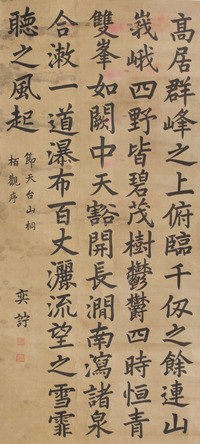 高居群峰之上俯臨千仭之餘連山
峩峨四野皆碧茂樹鬱鬱四時恒青
雙峯如闕中天豁開長澗南瀉諸泉
合漱一道瀑布百丈灑流望之雪霏
聽之風起
節天台山桐
栢觀序
奕